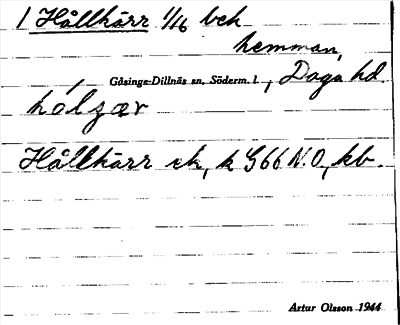 1 Hållkärr 1/16 beh
hemman,
Gåsinge-Dillnäs sn, Söderm. l., Daga hd.
hólʒær
Hållkärr ek, k G66 N.O, kb.
Artur Olsson 1944